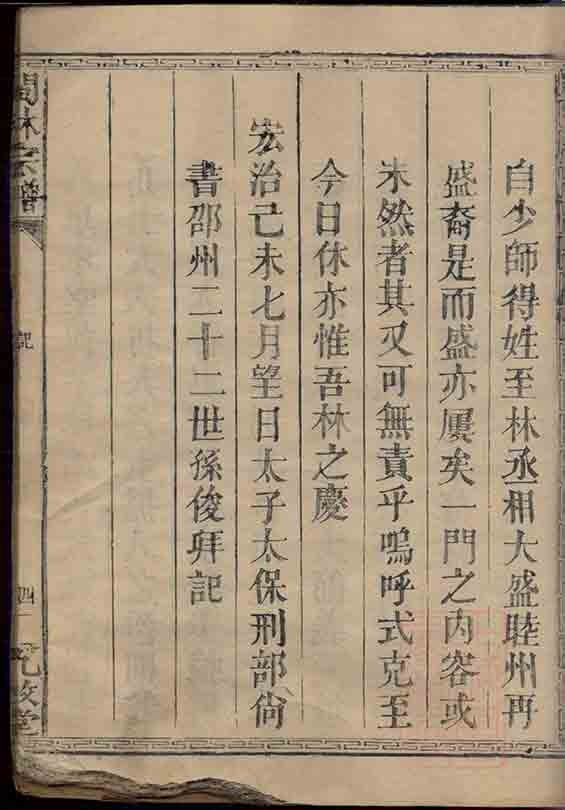 自少師得姓至林丞相大盛睦州再
盛裔是而盛亦屢矣一門之內容或
未然者其又可無責乎嗚呼式克至
今日休亦惟吾林之慶
宏治己未七月望日太子太保刑部尙
書邵州二十二世孫俊拜記
林宗譜
記
四